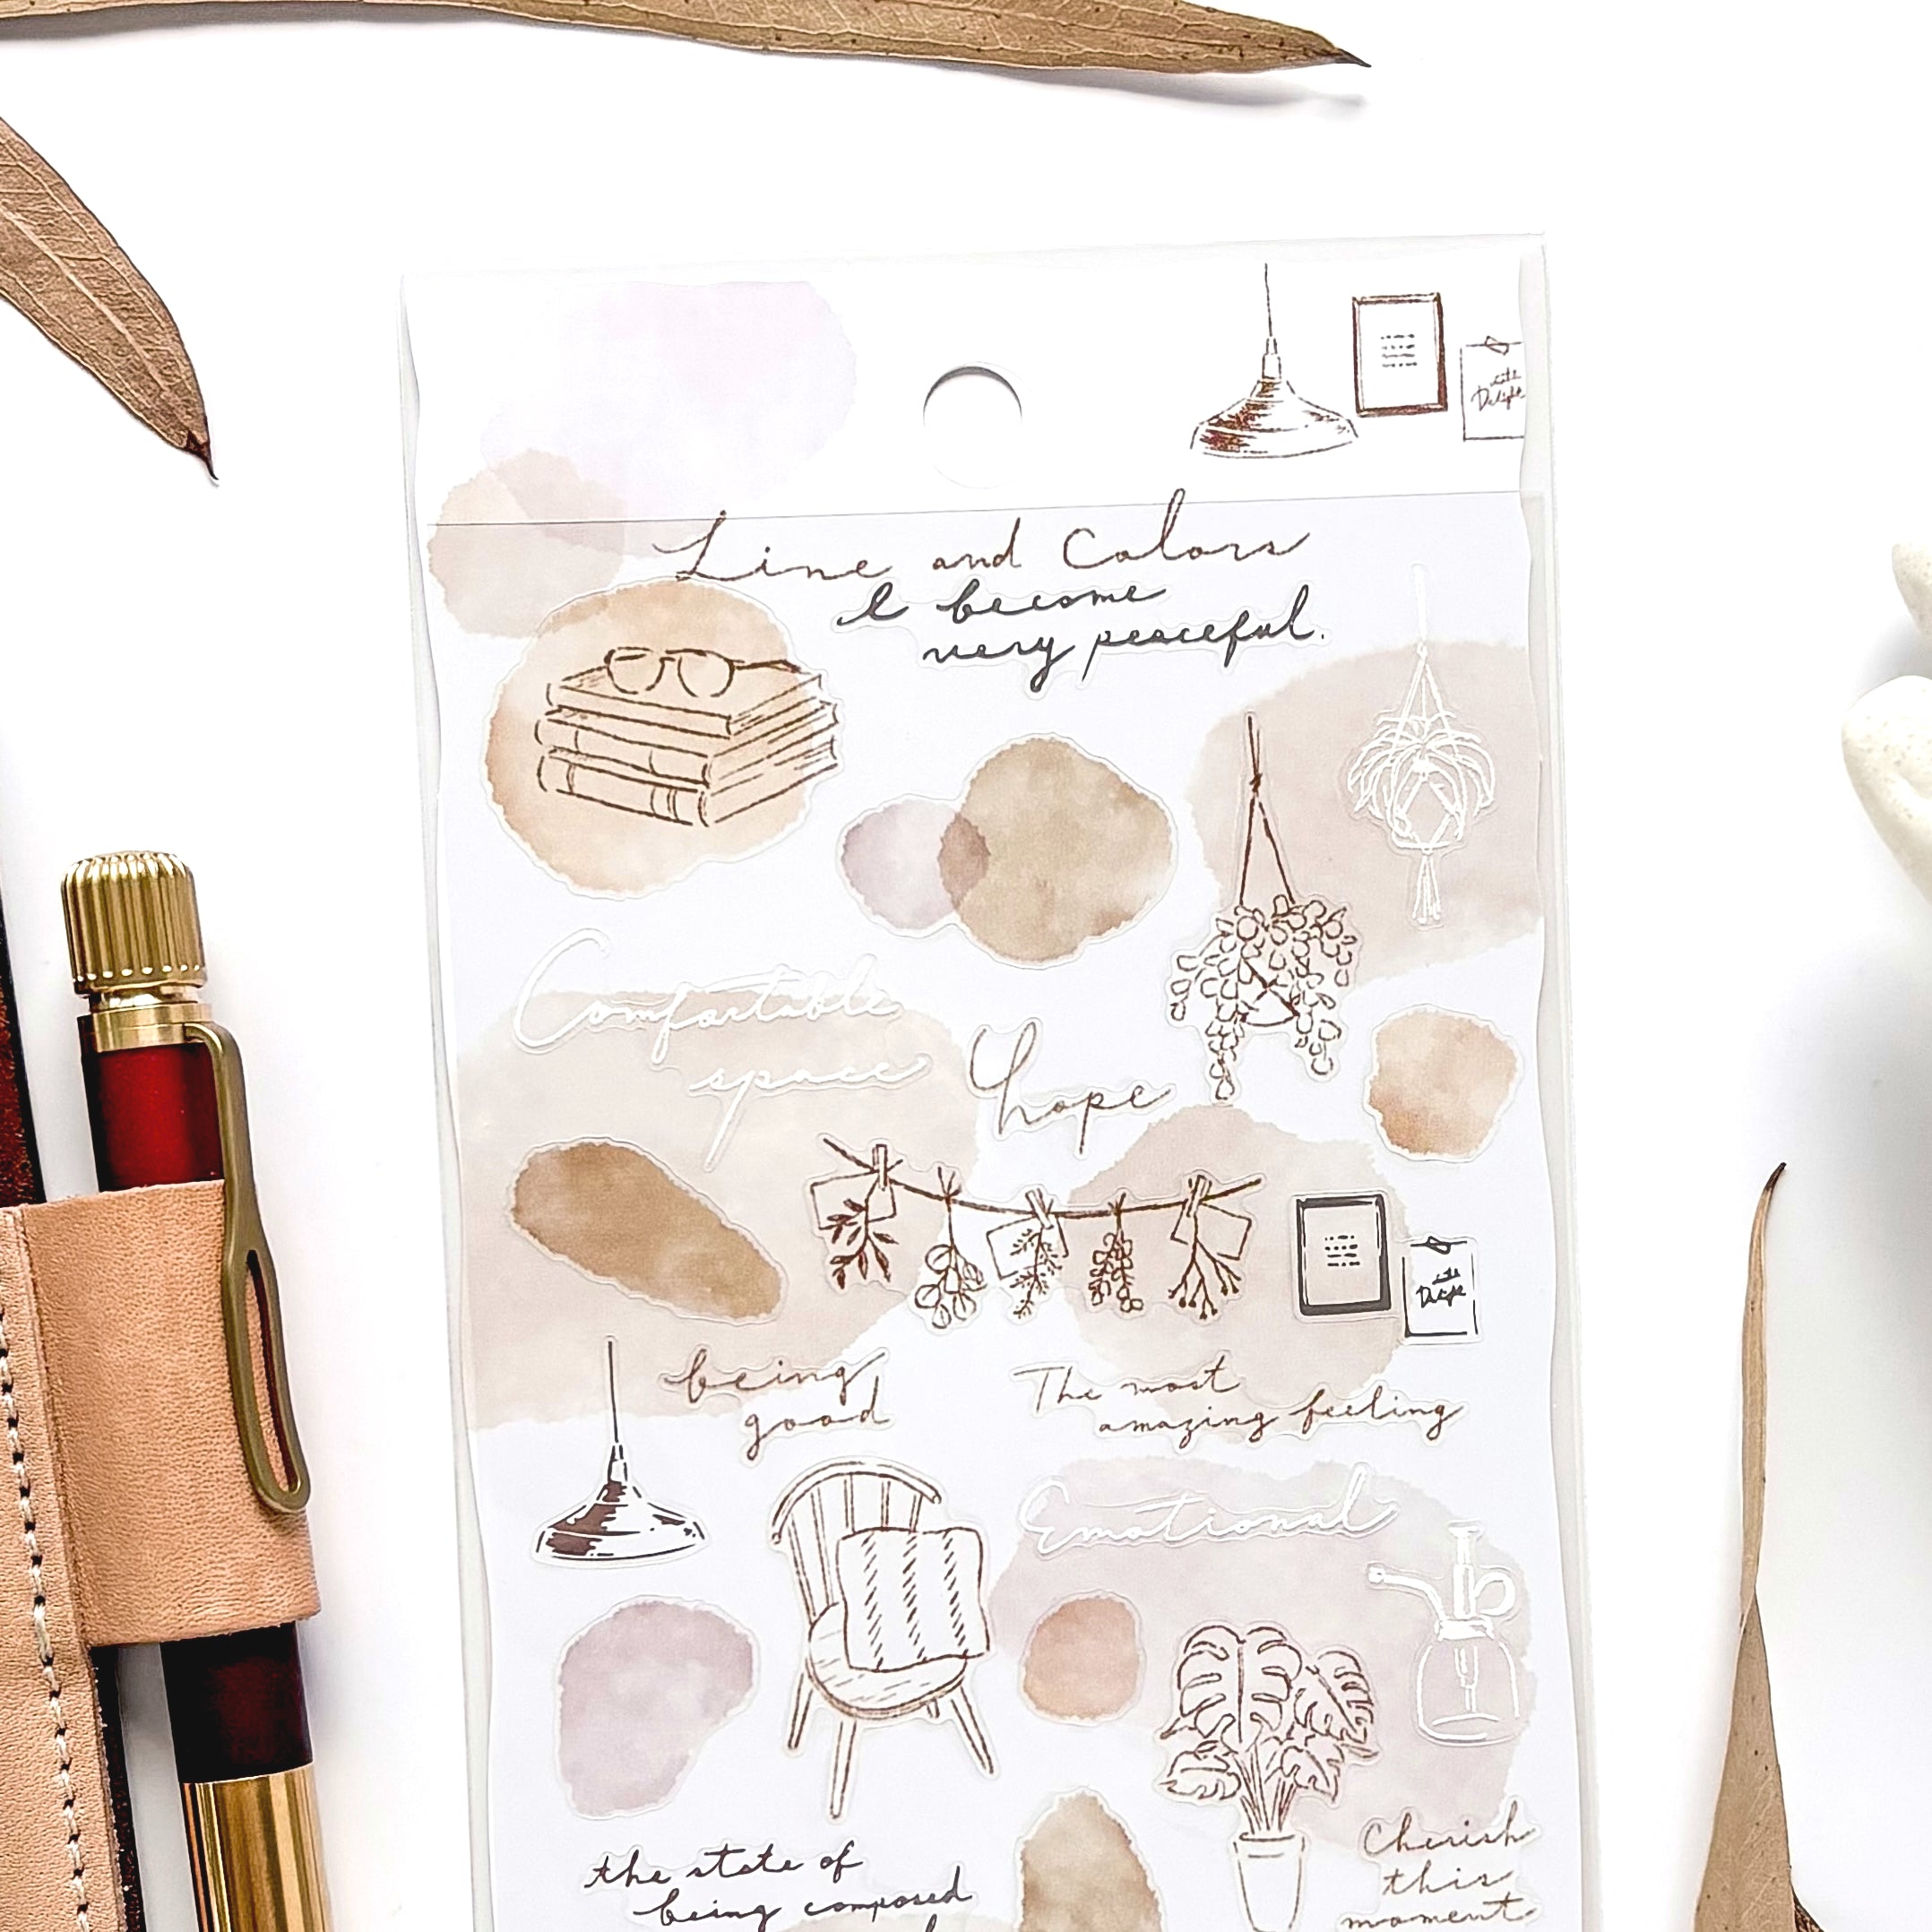 with
Delight
Line and Colors
I become
very peaceful.
Comfortable
space
hope
with
Delight
being
good
The most
amazing feeling
Emotional
the state of
being composed
Cherish
this
moment